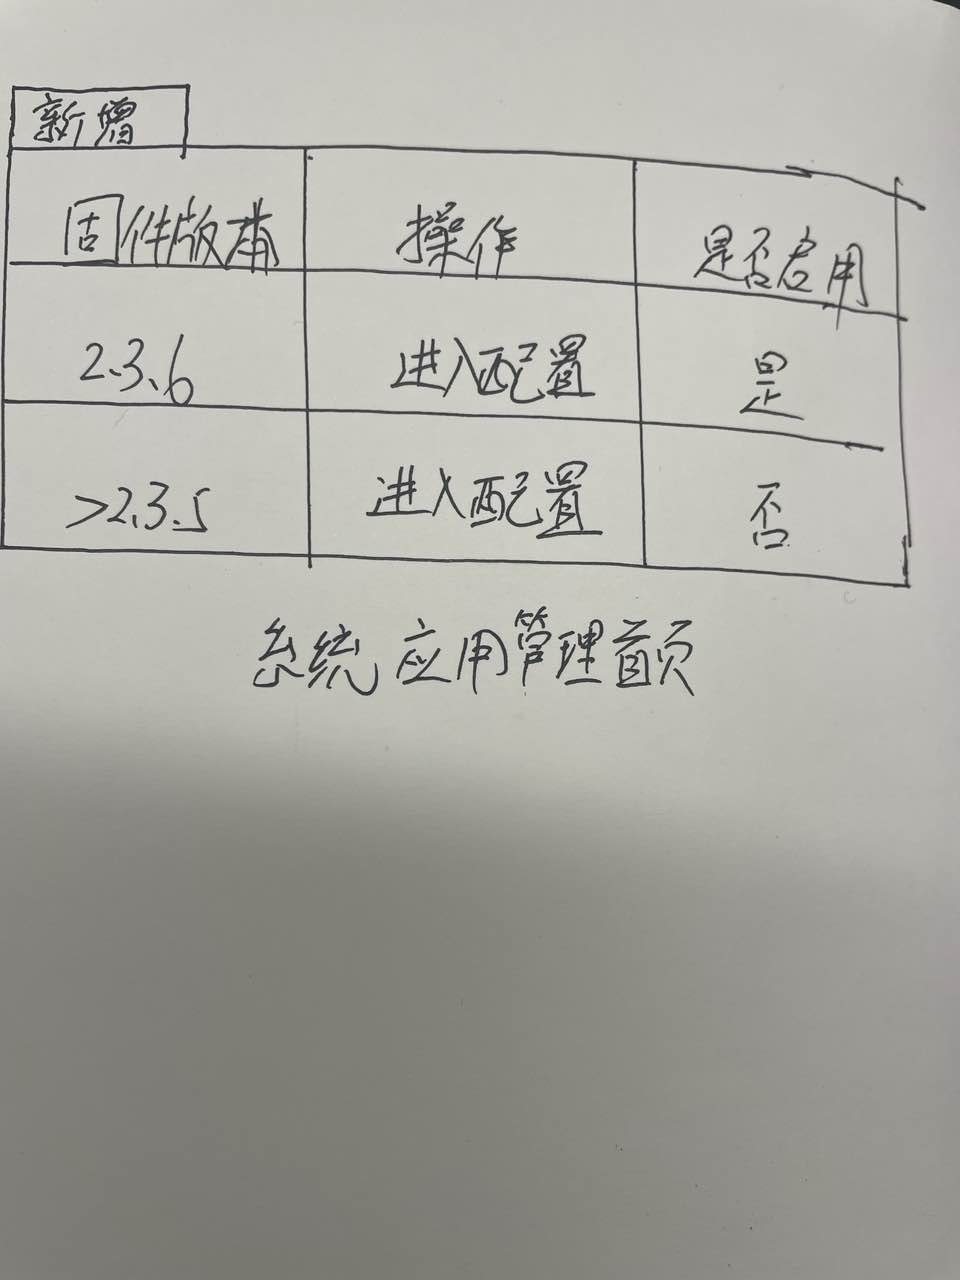 新增
固件版本 操作 是否启用
2.3.6 进入配置 是
>2.3.5 进入配置 否
系统应用管理首页